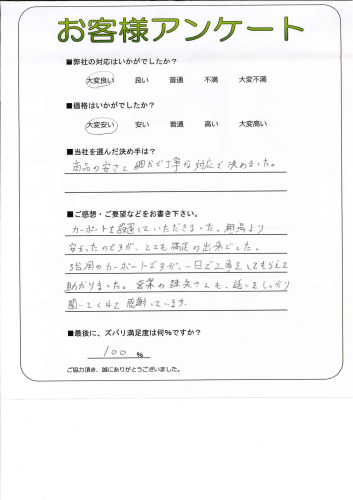 お客様アンケート
■弊社の対応はいかがでしたか？
大変良い 良い 普通 不満 大変不満
■価格はいかがでしたか？
大変安い 安い 普通 高い 大変高い
■当社を選んだ決め手は？
商品の安さと細かで丁寧な対応で決めました。
■ご感想・ご要望などをお書き下さい。
カーポートを設置していただきました。
安かったのですが、とても満足の出来でした。
3台用のカーポートですが、一日で工事をしてもらえて
助かりました。営業の さんも、話しをしっかり
聞いてくれて感謝しています。
■最後に、ズバリ満足度は何%ですか？
100 %
ご協力頂き、誠にありがとうございました。